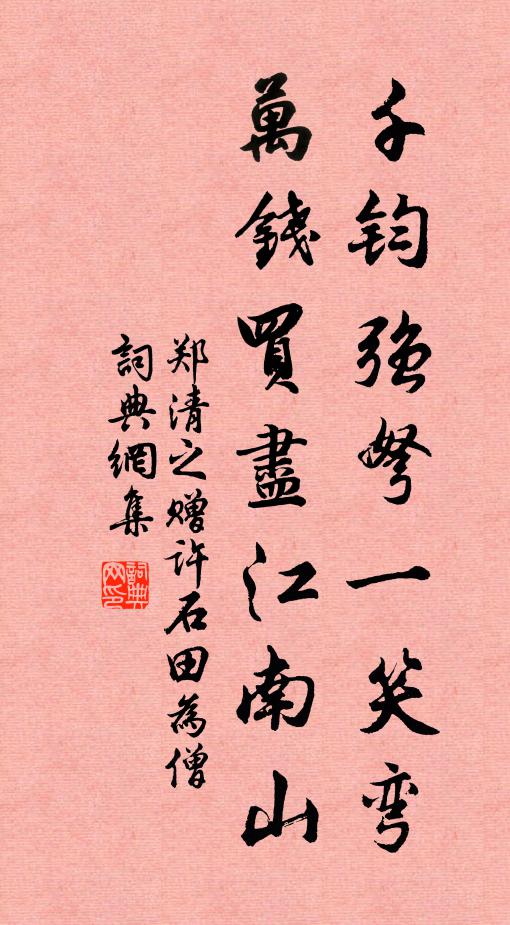 千鈞強弩一笑彎
萬錢買盡江南山
郑清之赠许石田為僧
詞典網集
詞典網印